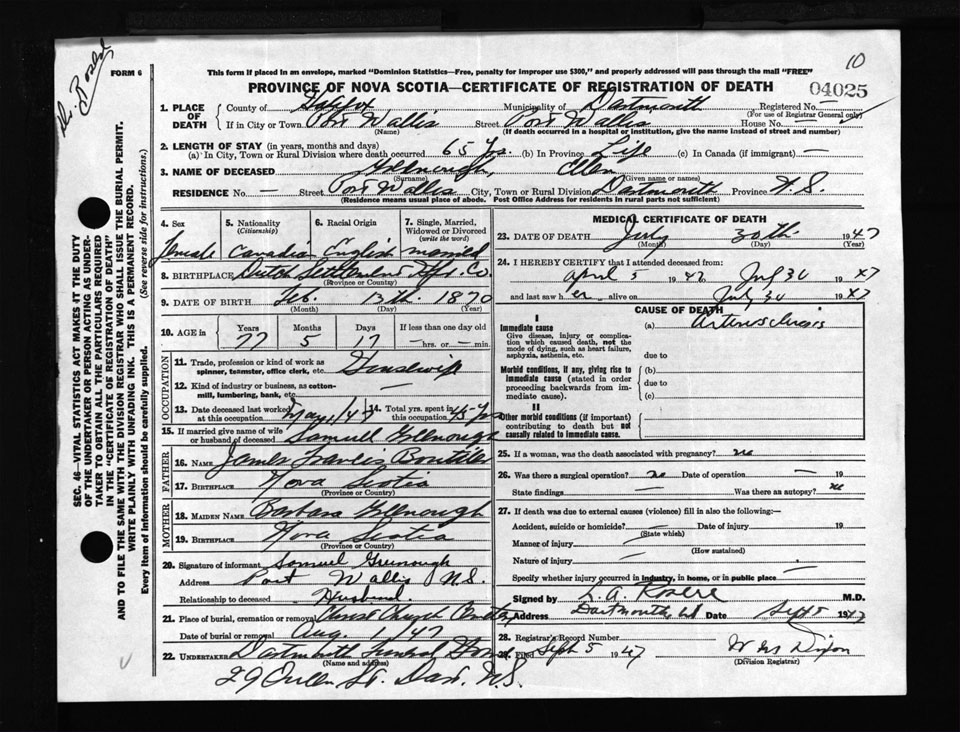 Dr. Rosere
FORM 6
10
This form if placed in an envelope, marked "Dominion Statistics—Free, penalty for improper use $300," and properly addressed will pass through the mail "FREE"
PROVINCE OF NOVA SCOTIA—CERTIFICATE OF REGISTRATION OF DEATH
04025
1. PLACE OF DEATH
County of Halifax Municipality of Dartmouth Registered No. —
(For use of Registrar General only)
If in City or Town Port Wallis Street Port Wallis House No. —
(Name) (If death occurred in a hospital or institution, give the name instead of street and number)
2. LENGTH OF STAY (in years, months and days)
(a) In City, Town or Rural Division where death occurred 65 Yrs. (b) In Province Life (c) In Canada (if immigrant) —
3. NAME OF DECEASED Ellen
(Given name or names)
RESIDENCE No. — Street Port Wallis City, Town or Rural Division Dartmouth Province N.S.
(Residence means usual place of abode. Post Office Address for residents in rural parts not sufficient)
SEC. 46—VITAL STATISTICS ACT MAKES IT THE DUTY
OF THE UNDERTAKER OR PERSON ACTING AS UNDER-
TAKER TO OBTAIN ALL THE PARTICULARS REQUIRED
IN THE "CERTIFICATE OF REGISTRATION OF DEATH"
AND TO FILE THE SAME WITH THE DIVISION REGISTRAR WHO SHALL ISSUE THE BURIAL PERMIT.
WRITE PLAINLY WITH UNFADING INK. THIS IS A PERMANENT RECORD.
Every item of information should be carefully supplied. (See reverse side for instructions.)
4. Sex
5. Nationality
(Citizenship)
6. Racial Origin
7. Single, Married, Widowed or Divorced
(write the word)
Female Canadian English married
8. BIRTHPLACE Dutch Settlement Hfx Co.
(Province or Country)
9. DATE OF BIRTH Feb. 13th. 1870
(Month) (Day) (Year)
10. AGE in
Years Months Days If less than one day old
77 5 17 — hrs. or — min.
OCCUPATION
11. Trade, profession or kind of work as
spinner, teamster, office clerk, etc. Housewife
12. Kind of industry or business, as cotton-
mill, lumbering, bank, etc. —
13. Date deceased last worked
at this occupation May 1/47
14. Total yrs. spent in
this occupation 45 Yrs
15. If married give name of wife
or husband of deceased Samuel Greenough
FATHER
16. NAME James Francis Boutilier
17. BIRTHPLACE Nova Scotia
(Province or Country)
MOTHER
18. MAIDEN NAME Barbara Greenough
19. BIRTHPLACE Nova Scotia
(Province or Country)
20. Signature of informant Samuel Greenough
Address Port Wallis N.S.
Relationship to deceased Husband
21. Place of burial, cremation or removal Christ Church Cemetery
Date of burial or removal Aug. 1/47
22. UNDERTAKER Dartmouth Funeral Home
(Name and address)
29 Queen St. Dart. N.S.
MEDICAL CERTIFICATE OF DEATH
23. DATE OF DEATH July 30th. 1947
(Month) (Day) (Year)
24. I HEREBY CERTIFY that I attended deceased from:
April 5 1947 July 30 1947
and last saw her alive on July 30 1947
CAUSE OF DEATH
I
Immediate cause
Give disease, injury or complica-
tion which caused death, not the
mode of dying, such as heart failure,
asphyxia, asthenia, etc.
(a) Arteriosclerosis
due to
Morbid conditions, if any, giving rise to
immediate cause (stated in order
proceeding backwards from im-
mediate cause).
(b)
due to
(c)
II
Other morbid conditions (if important)
contributing to death but not
causally related to immediate cause.
25. If a woman, was the death associated with pregnancy? no
26. Was there a surgical operation? no Date of operation — 19
State findings — Was there an autopsy? no
27. If death was due to external causes (violence) fill in also the following:—
Accident, suicide or homicide? — Date of injury 19
(State which)
Manner of injury
(How sustained)
Nature of injury —
Specify whether injury occurred in industry, in home, or in public place —
Signed by L. A. Rosere M.D.
Address Dartmouth, NS Date Sept 5 1947
28. Registrar's Record Number
29. Filed Sept 5 1947 W M Dixon
(Division Registrar)